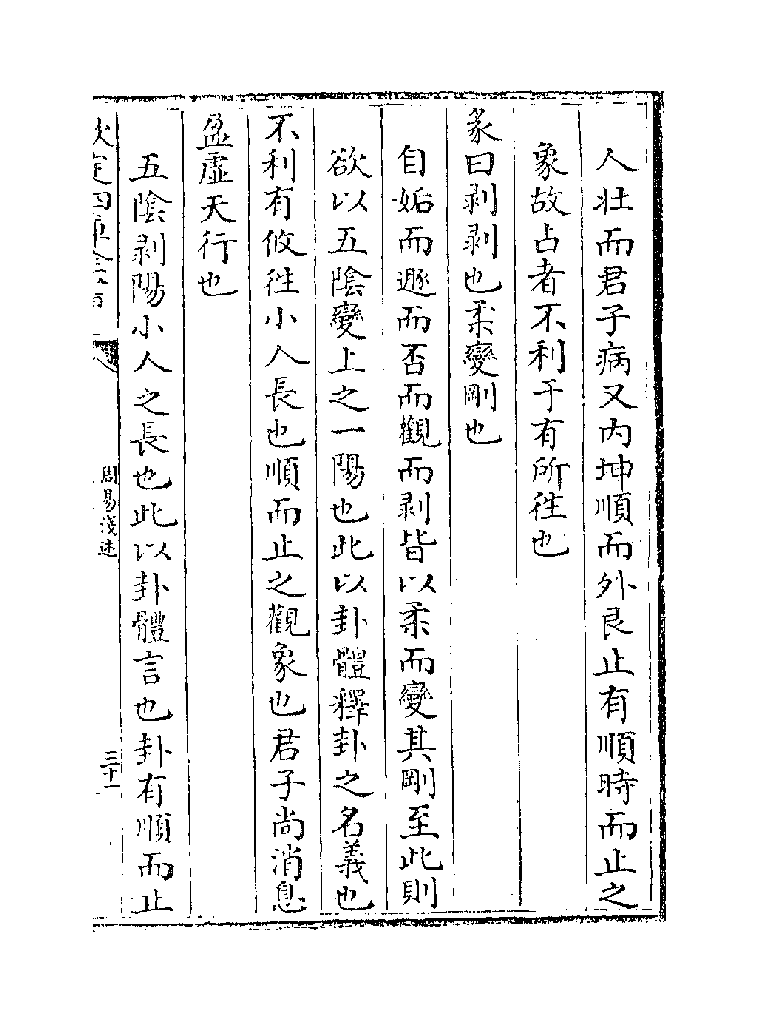 人壯而君子病又內坤順而外艮止有順時而止之
象故占者不利于有所徃也
彖曰剥剥也柔變剛也
自姤而遯而否而觀而剥皆以柔而變其剛至此則
欲以五陰變上之一陽也此以卦體釋卦之名義也
不利有攸徃小人長也順而止之觀象也君子尚消息
盈虛天行也
五陰剥陽小人之長也此以卦體言也卦有順而止
欽定四庫全書
周易淺述
三十一